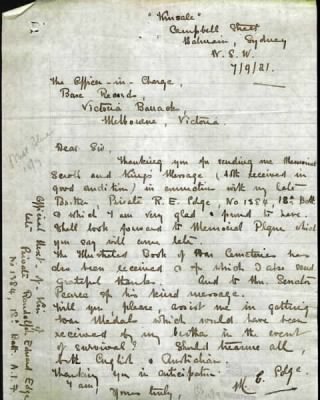 "Kinsale"
Campbell Street
Balmain, Sydney
N. S. W.
7/9/21.
The Officer-in-Charge,
Base Records,
Victoria Barracks,
Melbourne, Victoria.
Dear Sir,
Thanking you for sending me Memorial
Scroll and King's Message (both received in
good condition) in connection with my late
Brother Private R. E. Edge, No 1884, 18th Batt
of which I am very glad & proud to have.
Shall look forward to Memorial Plaque which
you say will come later.
The Illustrated Book of War Cemeteries has
also been received & for which I also send
grateful thanks. And to Hon. Senator
Pearce for his kind message.
Will you please assist me in getting
War Medals which would have been
received by my brother in the event
of survival? Should treasure all,
both English & Australian.
Thanking you in anticipation.
I am,
Yours truly,
M. E. Edge.
Official Next-of-Kin of
late Private Randolph Edmund Edge
No 1884, 18th Batt. A.I.F.